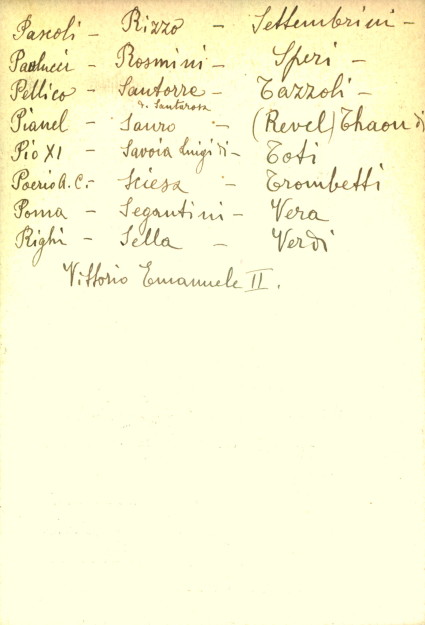 Pascoli - Rizzo - Settembrini -
Paulucci - Rosmini - Speri -
Pellico - Santorre - Tazzoli -
di Santarosa
Pianel - Sauro - (Revel) Thaon di
Pio XI - Savoia Luigi di - Toti
Poerio A. C. - Sciesa - Trombetti
Poma - Segantini - Vera
Righi - Sella - Verdi
Vittorio Emanuele II.